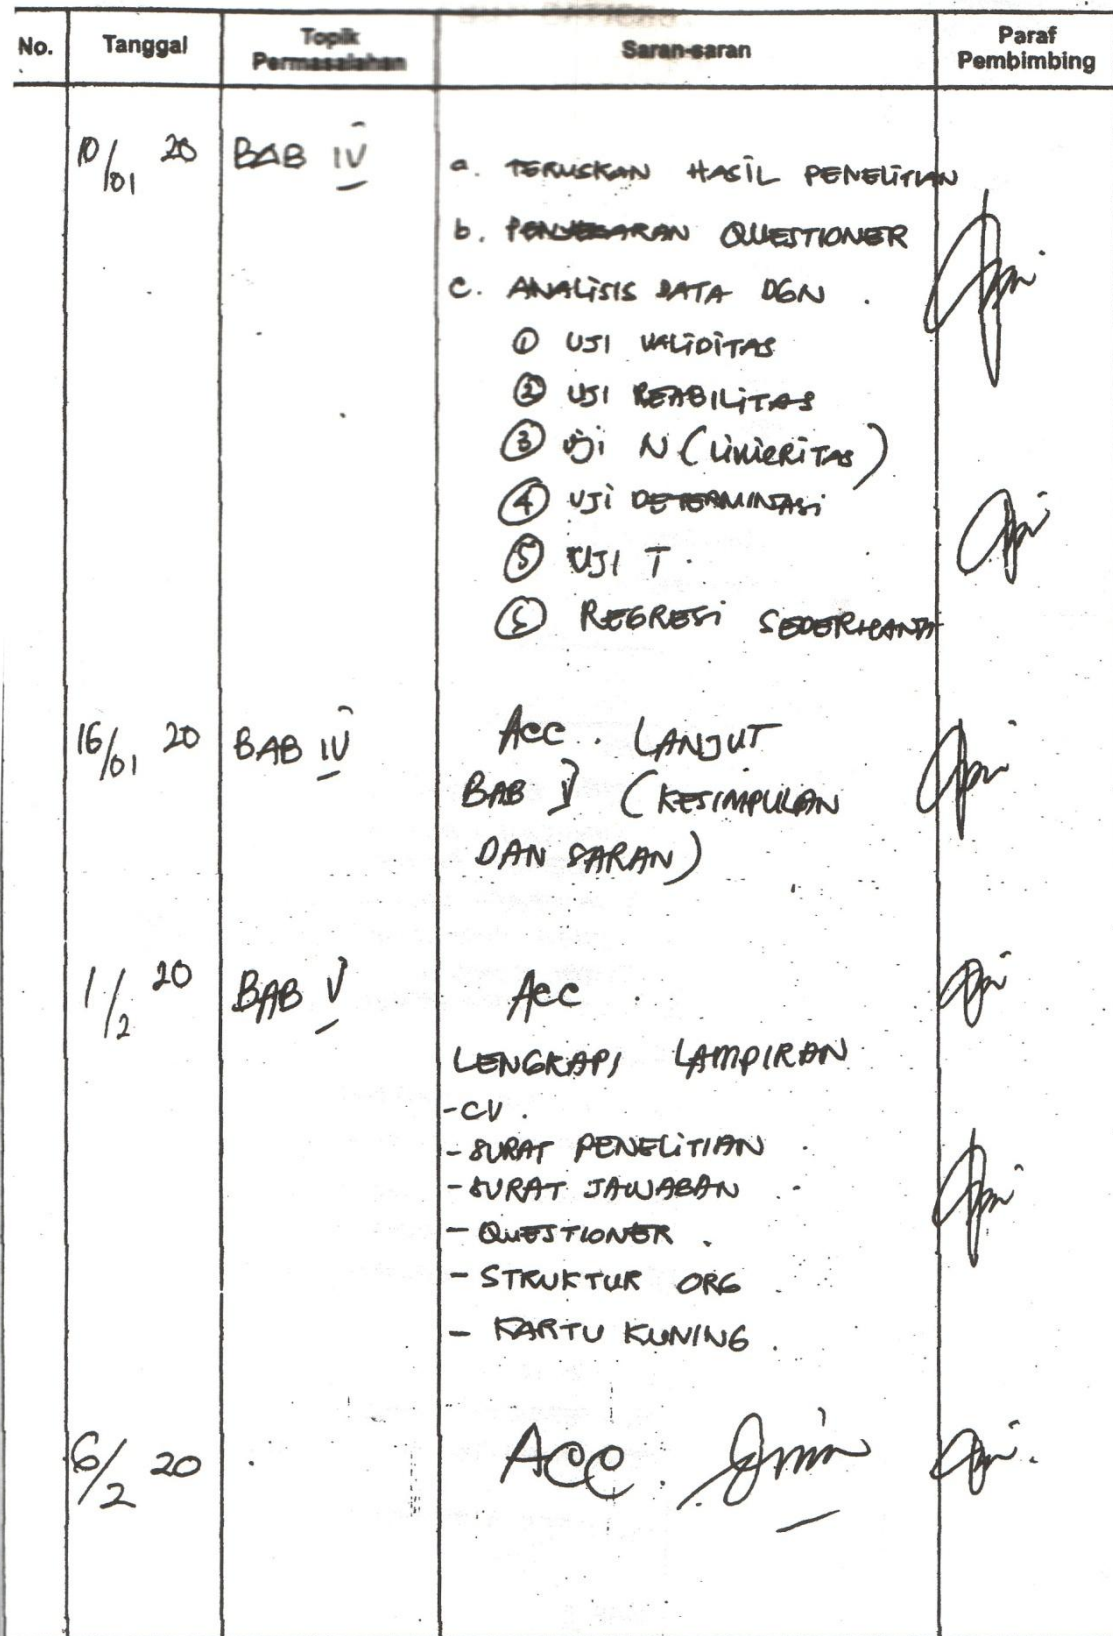 No. Tanggal Topik Permasalahan Saran-saran Paraf Pembimbing
10/01 20 BAB IV a. TERUSKAN HASIL PENELITIAN
b. PENYEBARAN QUESTIONER
c. ANALISIS DATA DGN
① UJI VALIDITAS
② UJI REABILITAS
③ Uji N (LINIERITAS)
④ UJI DETERMINASI
⑤ UJI T.
⑥ REGRESI SEDERHANA
16/01 20 BAB IV ACC. LANJUT
BAB V (KESIMPULAN
DAN SARAN)
1/2 20 BAB V ACC
LENGKAPI LAMPIRAN
- CV.
- SURAT PENELITIAN
- SURAT JAWABAN
- QUESTIONER.
- STRUKTUR ORG
- KARTU KUNING.
6/2 20 ACC.